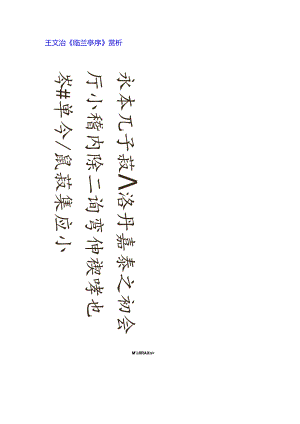 王文治《临兰亭序》赏析
永本兀子菽八洛丹嘉泰之初会
厅小稽内除二询弯伸禊哮也
岑#单今/鼠菽集应小